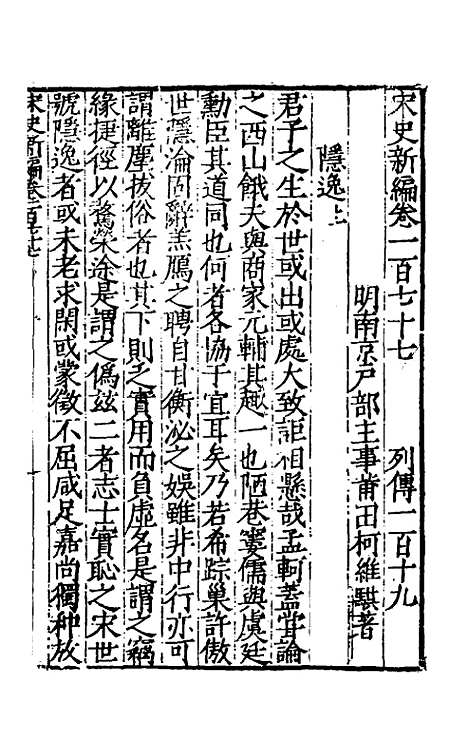 宋史新編卷一百七十七　　列傳一百十九
明南京戸部主事莆田柯維騏著
隱逸上
君子之生於世或出或處大致詎相懸哉孟軻蓋甞論
之西山餓夫與商家元輔其趣一也陋巷窶儒與虞廷
勳臣其道同也何者各協于宜耳矣乃若希踪巢許傲
世隱淪固辭羔鴈之聘自甘衡泌之娛雖非中行亦可
謂離塵拔俗者也其下則之實用而負虛名是謂之竊
緣捷徑以騖榮途是謂之僞茲二者志士實恥之宋世
號隱逸者或未老求閑或蒙徵不屈咸足嘉尚獨种放
宋史新編卷一百七十七